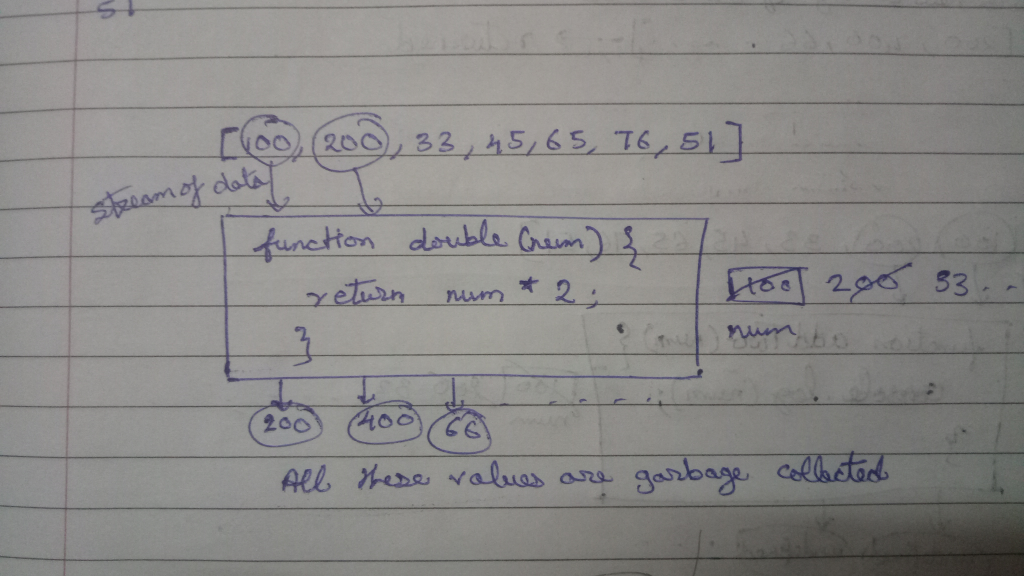 51
[100, 200, 33, 45, 65, 76, 51]
stream of data
function double (num) {
return num * 2;
}
100 200 33 ..
num
200 400 66
All these values are garbage collected